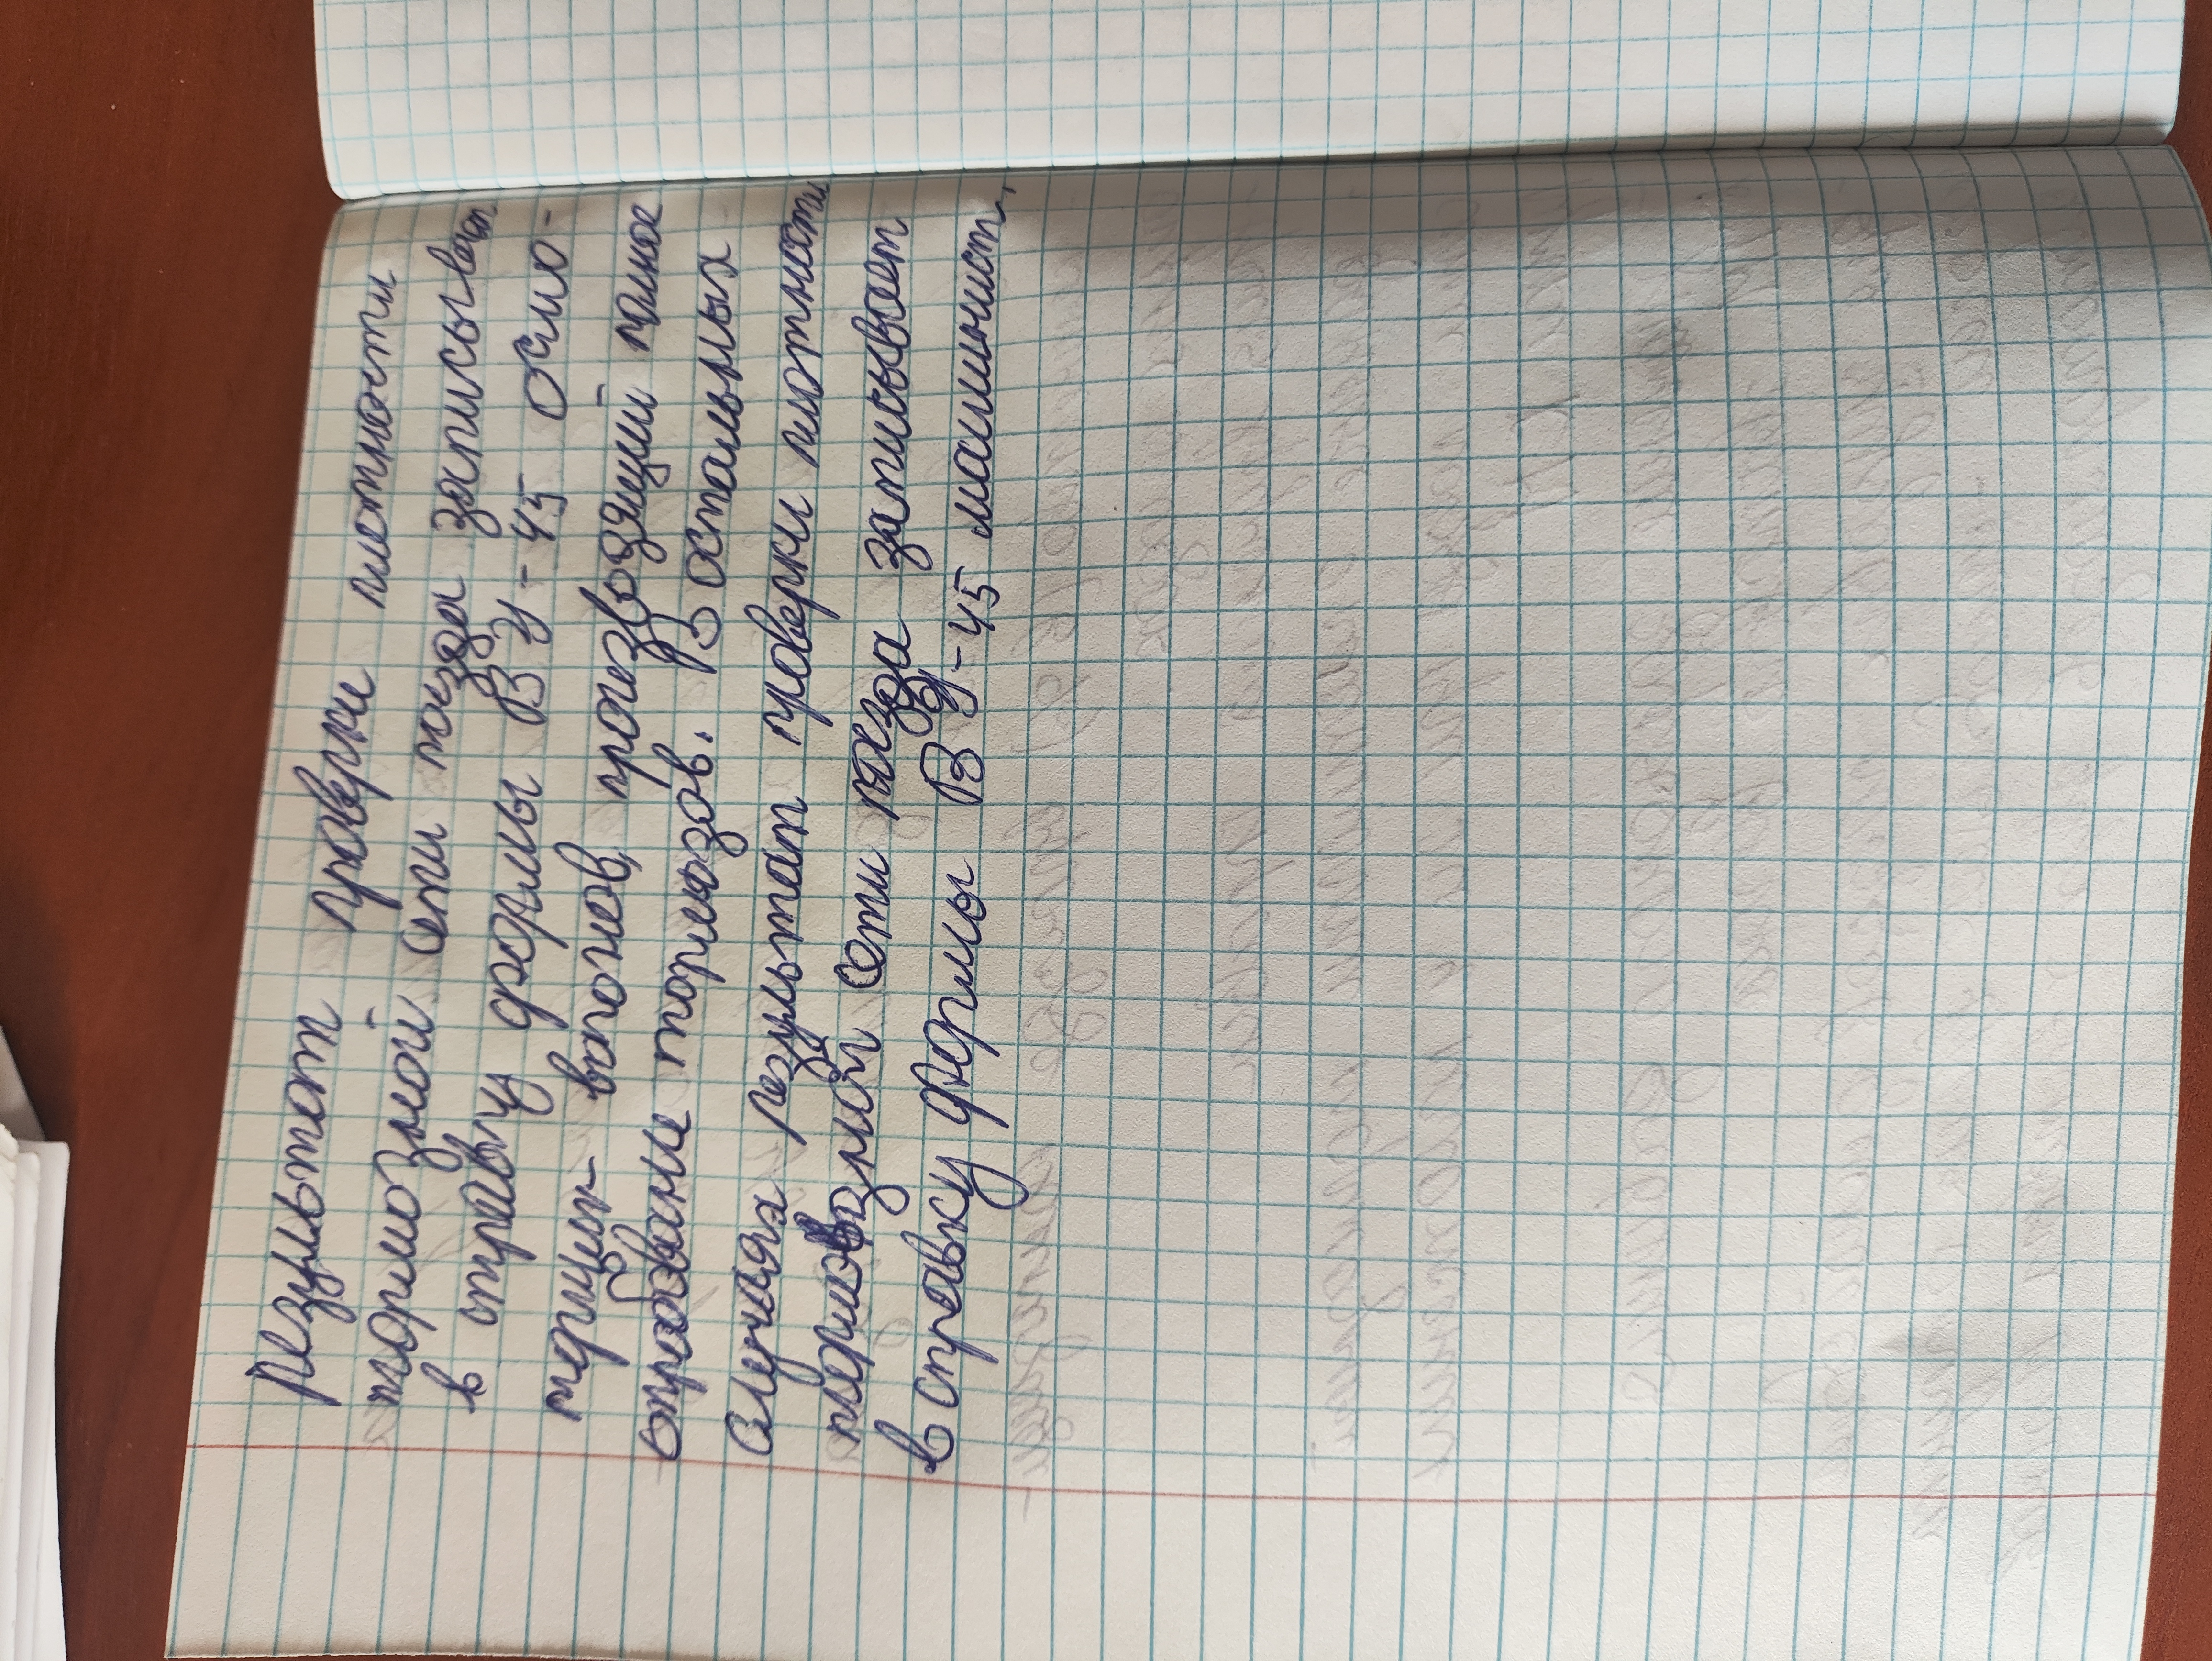 Результат проверки плотности
тормозной сети поезда записывает
в справку формы ВУ-45 осмо-
трщик вагонов, производящий полное
опробование тормозов. В остальных
случаях результат проверки плотности
тормозной сети поезда записывает
в справку формы ВУ-45 машинист.